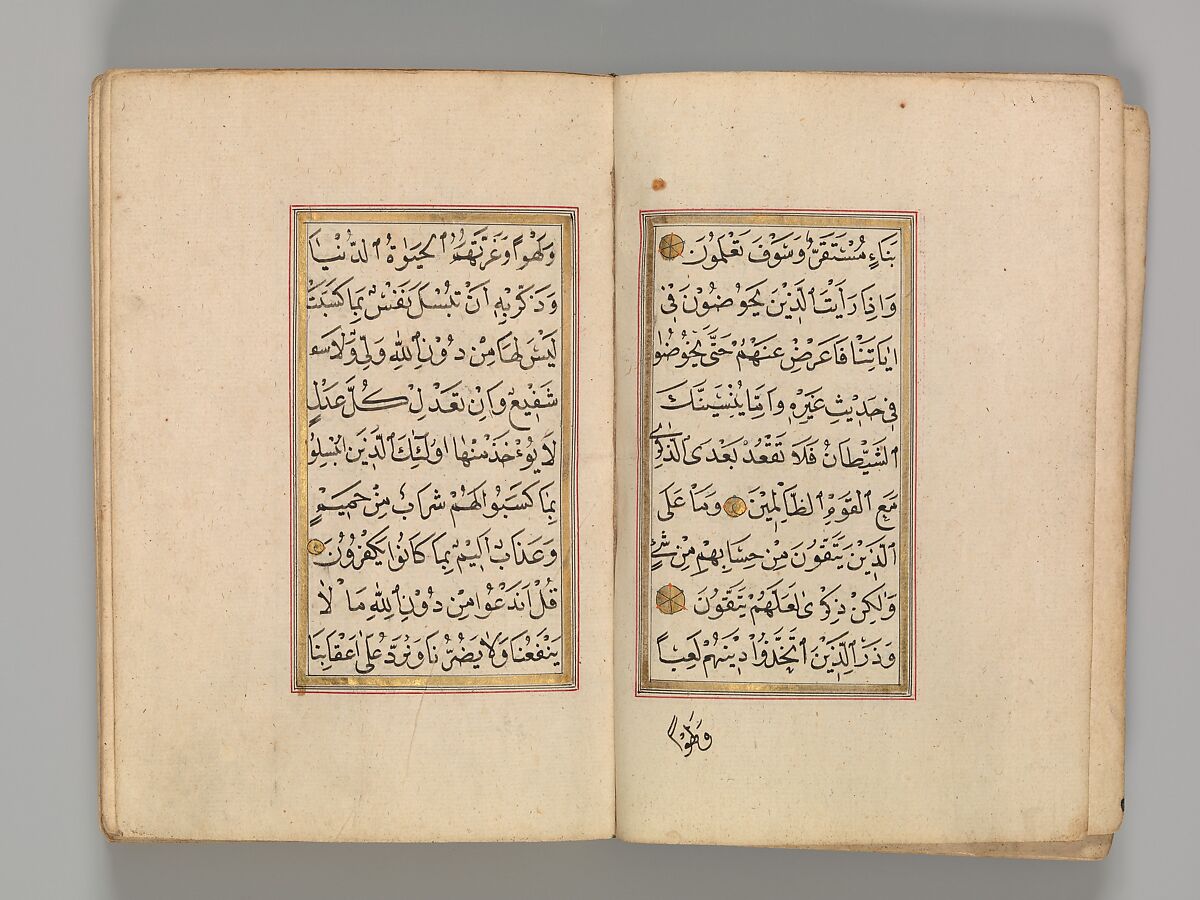 بَنَاءٍ مُسْتَقَرٌّ وَسَوْفَ تَعْلَمُونَ
وَاِذَا رَاَيْتَ ٱلَّذِينَ يَخُوضُونَ فِىٓ
اٰيَاتِنَا فَاَعْرِضْ عَنْهُمْ حَتّٰى يَخُوضُوا
فِى حَدِيثٍ غَيْرِهِ وَاِمَّا يُنْسِيَنَّكَ
ٱلشَّيْطَانُ فَلَا تَقْعُدْ بَعْدَ ٱلذِّكْرٰى
مَعَ ٱلْقَوْمِ ٱلظَّالِمِينَ وَمَا عَلَى
ٱلَّذِينَ يَتَّقُونَ مِنْ حِسَابِهِمْ مِنْ شَىْءٍ
وَلٰكِنْ ذِكْرٰى لَعَلَّهُمْ يَتَّقُونَ
وَذَرِ ٱلَّذِينَ ٱتَّخَذُوا دِينَهُمْ لَعِبًا
وَلَهْوًا
وَلَهْوًا وَغَرَّتْهُمُ ٱلْحَيٰوةُ ٱلدُّنْيَا
وَذَكِّرْ بِهِ اَنْ تُبْسَلَ نَفْسٌ بِمَا كَسَبَتْ
لَيْسَ لَهَا مِنْ دُونِ ٱللّٰهِ وَلِىٌّ وَلَا
شَفِيعٌ وَاِنْ تَعْدِلْ كُلَّ عَدْلٍ
لَا يُؤْخَذْ مِنْهَا اُولٰٓئِكَ ٱلَّذِينَ اُبْسِلُوا
بِمَا كَسَبُوا لَهُمْ شَرَابٌ مِنْ حَمِيمٍ
وَعَذَابٌ اَلِيمٌ بِمَا كَانُوا يَكْفُرُونَ
قُلْ اَنَدْعُوا مِنْ دُونِ ٱللّٰهِ مَا لَا
يَنْفَعُنَا وَلَا يَضُرُّنَا وَنُرَدُّ عَلٰٓى اَعْقَابِنَا